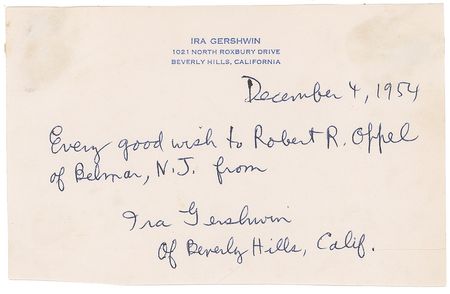 IRA GERSHWIN
1021 NORTH ROXBURY DRIVE
BEVERLY HILLS, CALIFORNIA
December 4, 1954
Every good wish to Robert R. Oppel
of Belmar, N.J. from
Ira Gershwin
Of Beverly Hills, Calif.